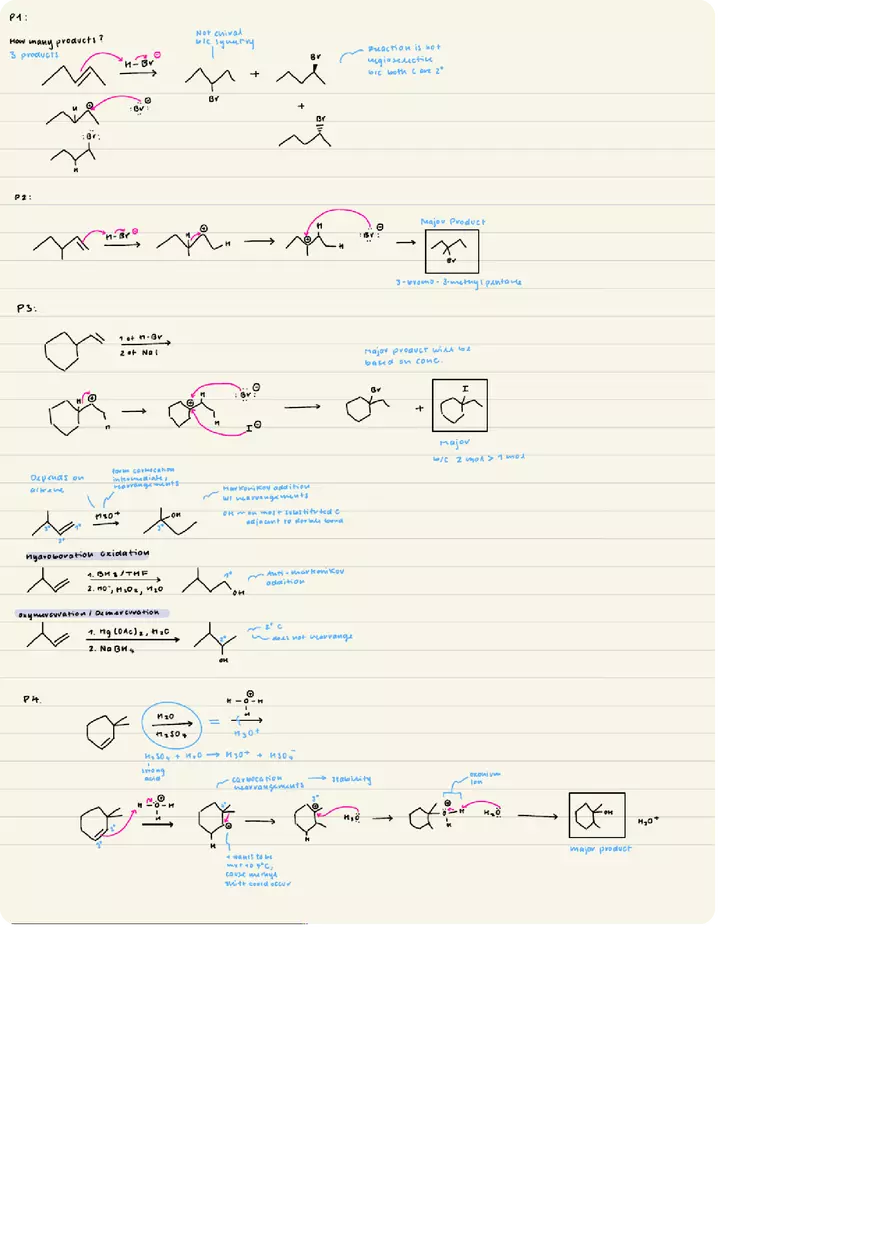 P1:
How many products?
3 products
Not chiral
b/c symetry
H-Br
Br
+
Br
Reaction is not
regioselective
b/c both C are 2°
H
:Br:
+
Br
:Br:
H
P2:
H-Br
H
H
H
H
:Br:
Major Product
Br
3-bromo-3-methyl pentane
P3:
1 of H-Br
2 of NaI
Major product will be
based on conc.
H
H
H
H
:Br:
I
Br
+
I
Major
b/c 2 mol > 1 mol
Depends on
alkene
form carbocation
intermediate,
rearrangements
H3O+
3°
2°
1°
OH
3°
Markovnikov addition
w/ rearrangements
OH on most substituted C
adjacent to double bond
Hydroboration Oxidation
1. BH3/THF
2. HO-, H2O2, H2O
1°
OH
Anti-markovnikov
addition
Oxymercuration / Demercuration
1. Hg(OAc)2, H2O
2. NaBH4
2°
OH
2° C
does not rearrange
P4.
H2O
H2SO4
=
H-O-H
H
H3O+
H2SO4 + H2O → H3O+ + HSO4-
strong
acid
carbocation
rearrangements
stability
2°
2°
H-O-H
H
H
want to be
cause methyl
shift could occur
3°
H
H2O
oxonium
ion
O-H
H
H2O
OH
major product
H3O+